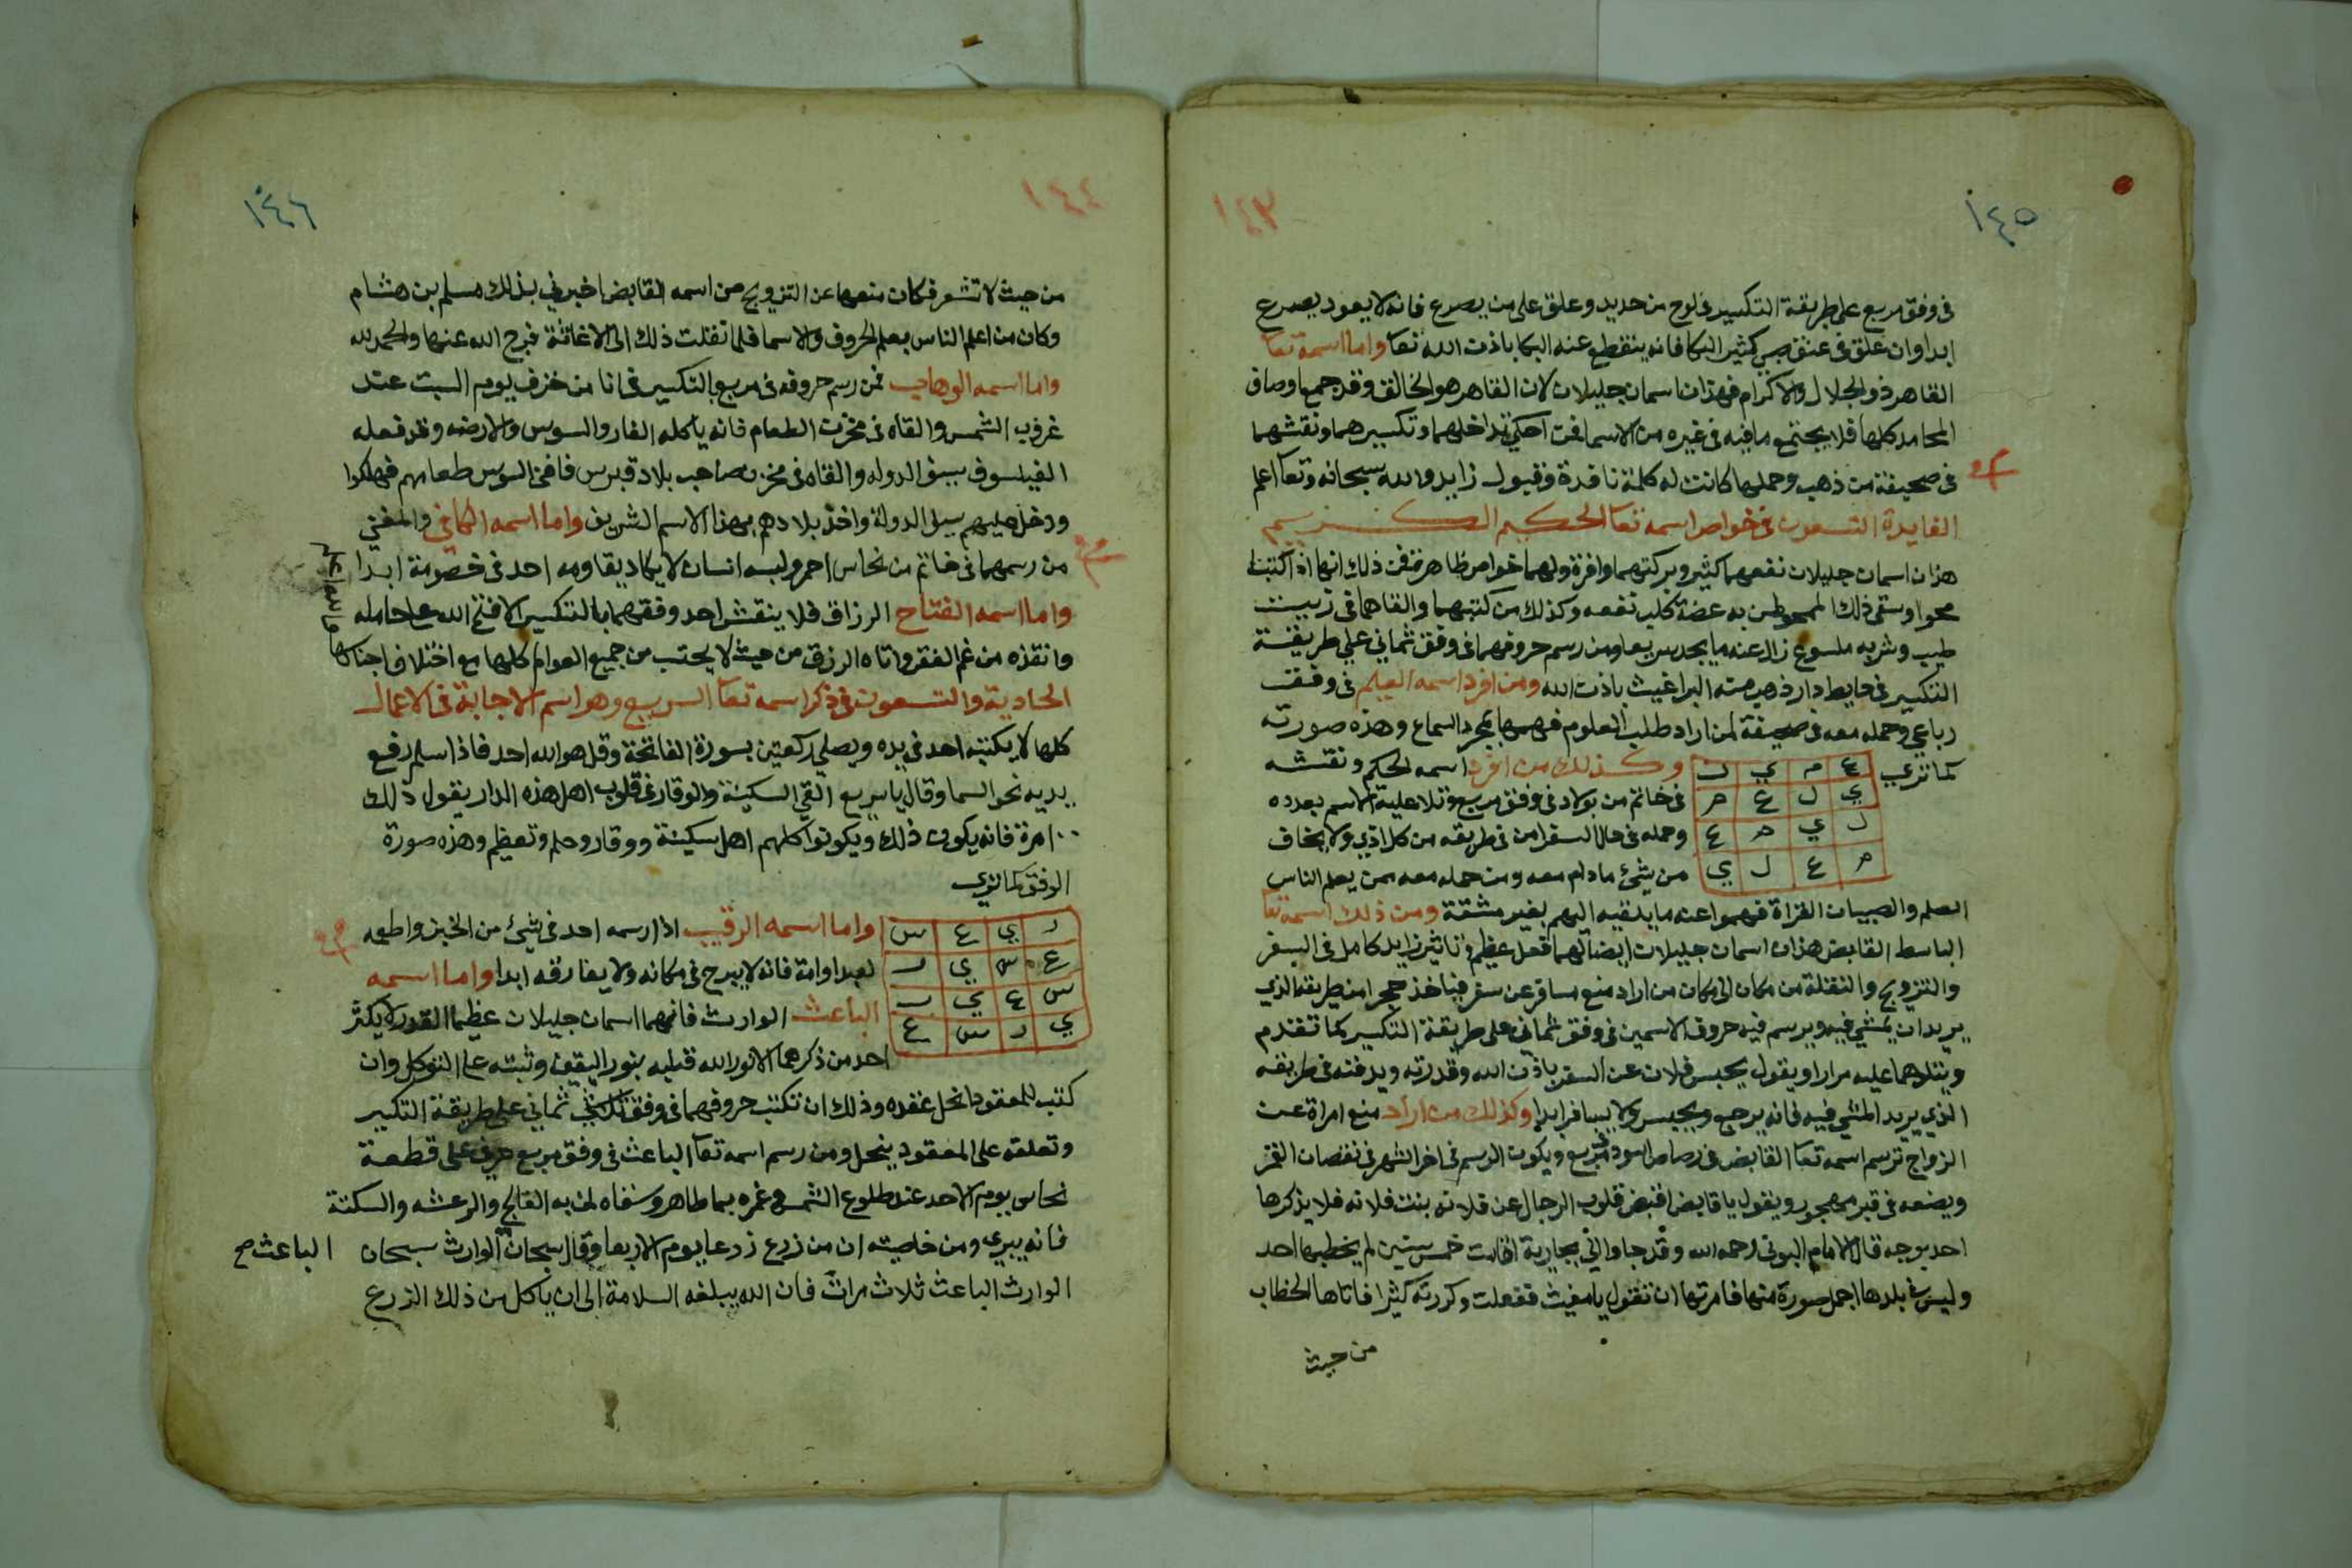 ١٤٥
١٤٣
في وفق مربع على طريقة التكسير في لوح من حديد وعلق على من يصرع فانه لا يعود يصرع
ابدا وان علق في عنق صبي كثير البكا فانه ينقطع عنه البكا باذن الله تعا واما اسمه تعا
القاهر ذو الجلال والاكرام فهذان اسمان جليلان لان القاهر هو الخالق وقد جمع اوصاف
المحامد كلها فلا يجتمع ما فيه في غيره من الاسما فمن احكم تداخلهما وتكسيرهما ونقشهما
في صحيفة من ذهب وحملها كانت له كلمة نافذة وقبول زايد والله سبحانه وتعا اعلم
الفايدة التسعون في خواص اسمه تعا الحكيم الكريم
هذان اسمان جليلان نفعهما كثير وبركتهما وافرة ولهما خواص ظاهرة فمن ذلك انهما اذا كتبتا
محوا وسقي ذلك الممحو لمن به عضة كلب نفعه وكذلك من كتبهما والقاهما في زيت
طيب وشربه ملسوع زال عنه ما يجد سريعا ومن رسم حروفهما في وفق ثماني علي طريقة
التكسير في حايط دار ذهب منه البراغيث باذن الله ومن افرد اسمه العليم في وفق
رباعي وحمله معه في صحيفة لمن اراد طلب العلوم فهمها بمجرد السماع وهذه صورته
كما تري
ع م ي ل
ي ل ع م
ل ي م ع
م ع ل ي
وكذلك من افرد اسمه الحكم ونقشه
في خاتم من بولاد في وفق مربع وتلا عليه الاسم بعدده
وحمله في حال السفر امن في طريقه من كل اذي ولا يخاف
من شئ ما دام معه ومن حمله معه ممن يعلم الناس
العلم والصبيان القراة فهموا عنه ما يلقيه اليهم بغير مشقة ومن ذلك اسمه تعا
الباسط القابض هذان اسمان جليلان ايضا لهما فعل عظيم وتاثير زايد كامل في السفر
والتزويج والنقلة من مكان الى مكان من اراد منع مسافر عن سفر فياخذ حجرا من طريقه الذي
يريد ان يمشي فيه ويرسم فيه حروف الاسمين في وفق ثماني على طريقة التكسير كما تقدم
ويتلوهما عليه مرارا ويقول يحبس فلان عن السفر باذن الله وقدرته ويدفنه في طريقه
الذي يريد المشي فيه فانه يرجع ويحبس ولا يسافر ابدا وكذلك من اراد منع امراة عن
الزواج ترسم اسمه تعا القابض في رصاص اسود مربع ويكون الرسم في اخر الشهر في نقصان القمر
ويضعه في قبر مهجور ويقول يا قابض اقبض قلوب الرجال عن فلانه بنت فلانه فلا يذكرها
احد بوجه قال الامام البوني رحمه الله وقد جاواني بجارية اقامت خمس سنين لم يخطبها احد
وليس في بلدها اجمل صورة منها فامرتها ان تقول يا مغيث ففعلت وكررته كثيرا فاتاها الخطاب
من حيث
١٤٤
١٤٦
من حيث لا تشعر فكان منعها عن التزويج من اسمه القابض اخبرني بذلك مسلم بن هشام
وكان من اعلم الناس بعلم الحروف والاسما فلما نقلت ذلك الى الاغاثة فرج الله عنها والحمد لله
واما اسمه الوهاب فمن رسم حروفه في مربع بالتكسير في انا من خزف يوم السبت عند
غروب الشمس والقاه في مخزن الطعام فانه ياكله الفار والسوس والارضه وقد فعله
الفيلسوف سيف الدوله والقاه في مخزن صاحب بلاد قبرس فافني السوس طعامهم فهلكوا
ودخل عليهم سيف الدولة واخذ بلادهم بهذا الاسم الشريف واما اسمه الكافي والمغني
من رسمهما في خاتم من نحاس احمر ولبسه انسان لا يكاد يقاومه احد في خصومة ابدا
واما اسمه الفتاح الرزاق فلا ينقش احد وفقهما بالتكسير الا فتح الله على حامله
وانقذه من غم الفقر واتاه الرزق من حيث لا يحتسب من جميع العوام كلها مع اختلاف اجناسها
الحادية والتسعون في ذكر اسمه تعا السريع وهو اسم الاجابة في الاعمال
كلها لا يكتبه احد في يده ويصلي ركعتين بسورة الفاتحة وقل هو الله احد فاذا سلم رفع
يديه نحو السما وقال يا سريع القي السكينة والوقار في قلوب اهل هذه الدار يقول ذلك
١٠٠ مرة فانه يكون ذلك ويكونوا كلهم اهل سكينة ووقار وحلم وتعظيم وهذه صورة
الوفق كما تري
ر ي ع س
ع س ي ر
س ع ي ر
ي ر س ع
واما اسمه الرقيب اذا رسمه احد في شئ من الخبز واطعمه
لعبد او امة فانه لا يبرح في مكانه ولا يفارقه ابدا واما اسمه
الباعث الوارث فانهما اسمان جليلان عظيما القدر لا يكثر
احد من ذكرهما الا نور الله قلبه بنور اليقين وثبته على التوكل وان
كتب للمعقود انحل عقده وذلك ان تكتب حروفهما في وفق ثماني على طريقة التكسير
وتعلقه على المعقود ينحل ومن رسم اسمه تعا الباعث في وفق مربع حرفي على قطعة
نحاس يوم الاحد عند طلوع الشمس وغمره بما طاهر وسقاه لمن به الفالج والرعشه والسكتة
فانه يبري ومن خاصيته ان من زرع زرعا يوم الاربعا وقال سبحان الوارث سبحان
الباعث صح
الوارث الباعث ثلاث مرات فان الله يبلغه السلامة الى ان ياكل من ذلك الزرع